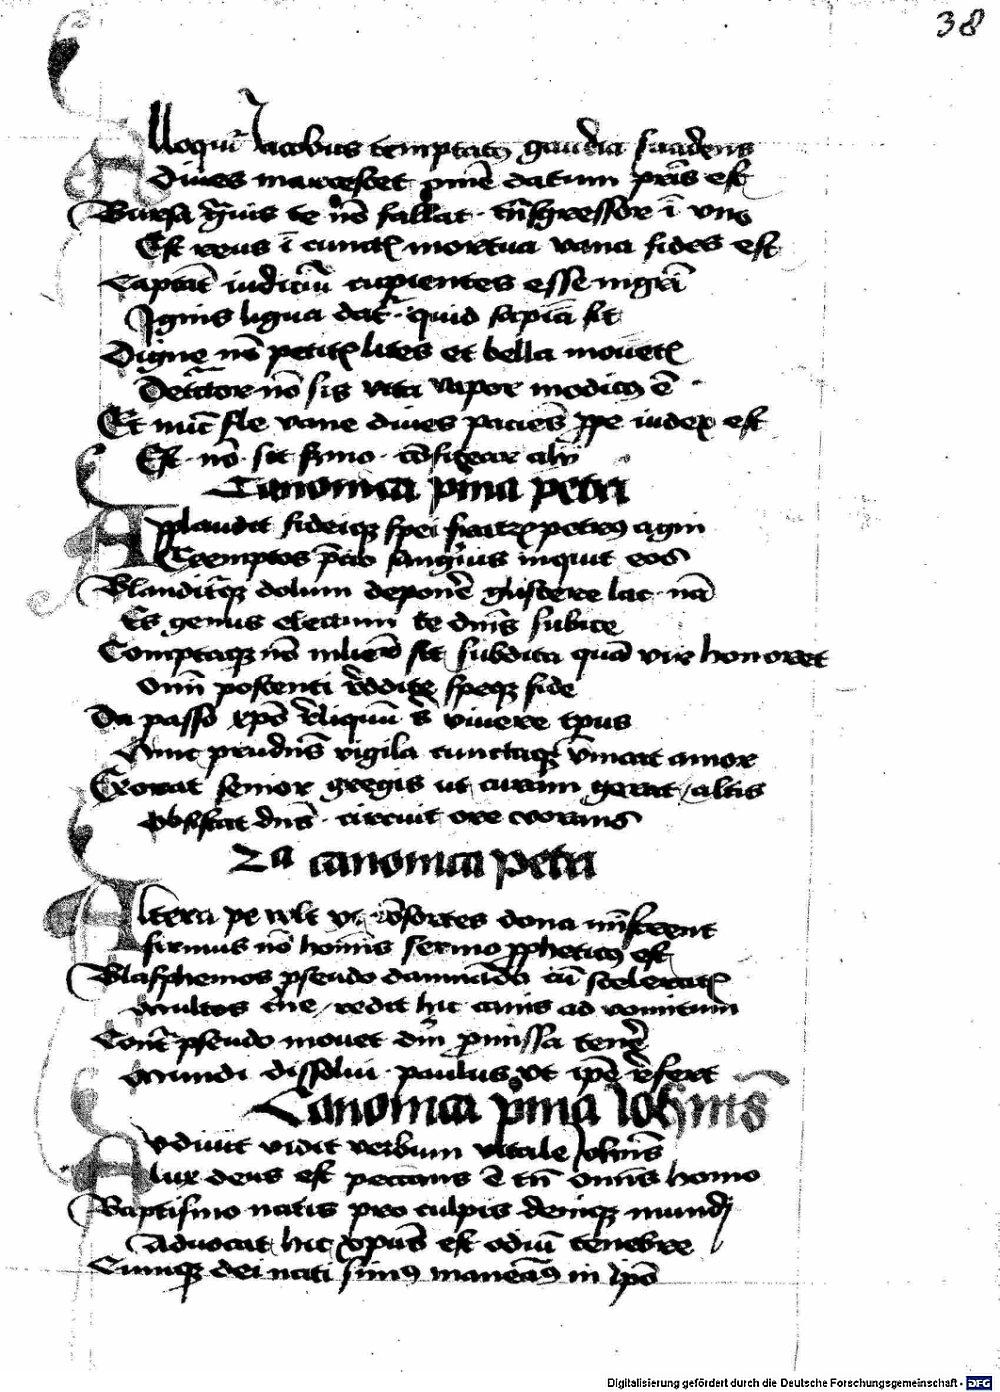 38
Alloquit' Jacobus temptatos gaudia suadens
Diues marcescet omē datum pr̄is est
Bursa g̃uis te nō fallat tn̄sgressor ī vno
Est reus ī cunctis mortua vana fides est
Captāt iudiciū cupientes esse mgr̄i
Ignis ligua dat' quid sapīa sit
Digne nō petitis lites et bella mouetis
Det̃ctor nō sis vita vapor modicus ē
Et nūc fle vane diues paciēs ꝓpe iudex est
Est nō sit sermo cōfitear alijs
Canonica p̄ma petri
Applaudit fideiqz spei fratrū petrus agni
Exemptos p̄cio sanguīs inquit eos
Blanditūqz dolum deponē gliscere lac nā
Es genus electum te dn̄is subice
Comptaqz nō mulier sit subdita quā vir honoret
Omī poscenti r̄ddite speqz fide
Da passo xpō r̄liquū vivere tp̄us
Nunc prudēs vigila cunctaqz vīcat amor
Exorat senior gregis ut curam gerat altis
Obsistat dn̄s circuit ore vorans
2a canonica petri
Altera pe vult vt cōsortes dona mīstrent
firmus nō homīs sermo ꝓpheticus est
Blasphemos pseudo damnādos cū sceleratis
Multos redit hic canis ad vomitum
Cont̄ pseudo mouet dn̄i ꝓmissa tenē
Mundi dissolui paulus vt ip̄e r̄fert
Canonica p̄ma Ioh̄nis
Avdiuit vidit verbum vitale Ioh̄nis
lux deus est peccans ē tn̄ omnis homo
Baptismo natis pro culpis deniqz mundi
Aduocat hic xp̄us est odiū tenebre
Cumqz dei nati sim9 maneam9 in ip̄o
Digitalisierung gefördert durch die Deutsche Forschungsgemeinschaft - DFG